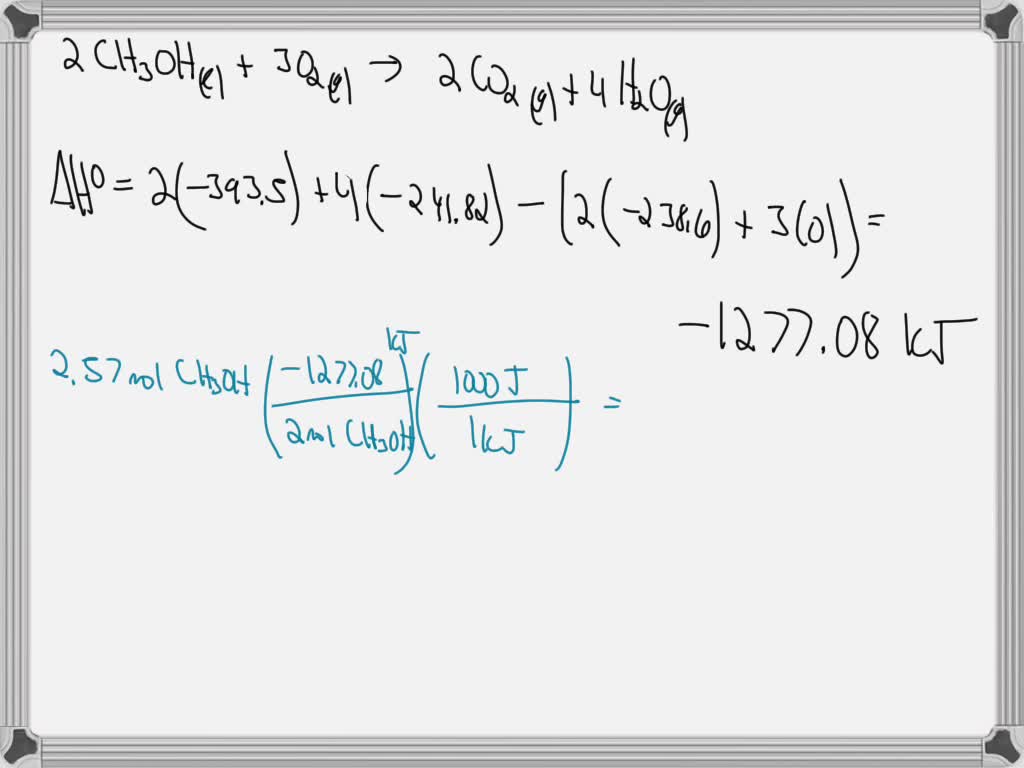 2CH3OH(l) + 3O2(g) → 2CO2(g) + 4H2O(g)
ΔH° = 2(-393.5) + 4(-241.82) - [2(-238.6) + 3(0)] =
-1277.08 kJ
2.57 mol CH3OH (-1277.08 kJ / 2 mol CH3OH) (1000 J / 1 kJ) =